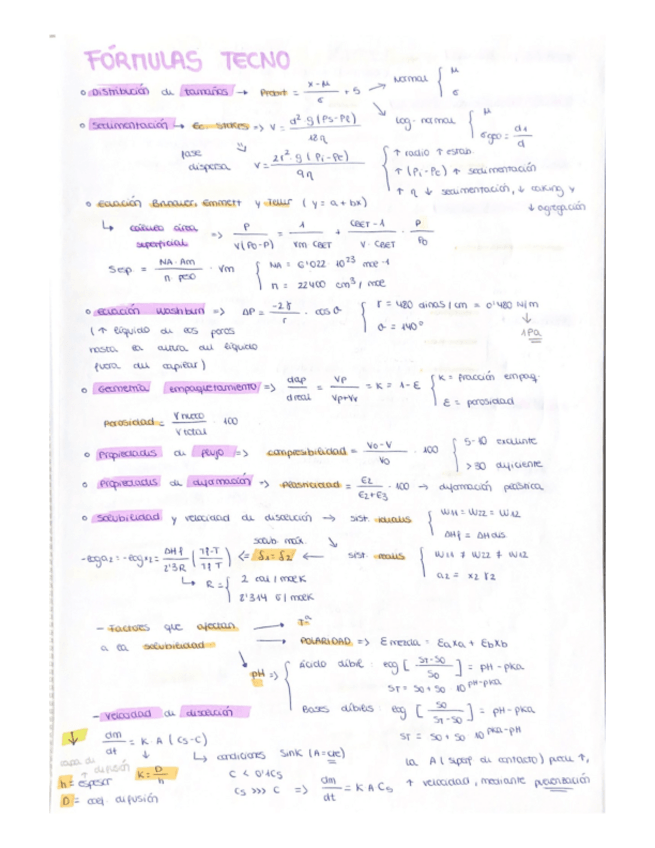 FÓRMULAS TECNO
o Distribución de tamaños → Probit = (x-μ)/σ + 5 → Normal { μ σ
↘ Log-normal { μ σgeo = d1/d
o Sedimentación → Ec. Stokes => v = d²·g(ρs-ρl)/18η
fase dispersa v = 2r²·g(ρi-ρe)/9η
↑ radio ↑ estab.
↑ (ρi-ρe) ↑ sedimentación
↑ η ↓ sedimentación, ↓ caking y
↓ agregación
o Ecuación Brunauer, Emmett y Teller (y = a + bx)
↳ cálculo área superficial => P/V(P0-P) = 1/Vm CBET + (CBET-1)/V·CBET · P/P0
Sesp. = NA·Am/n·peso · Vm { NA = 6'022·10²³ mol-1
n = 22400 cm³/mol
o Ecuación Washburn => ΔP = -2γ/r · cos θ { γ = 480 dinas/cm = 0'480 N/m
(↑ líquido de los poros θ = 140° ↓ 1Pa
hasta la altura del líquido
fuera del capilar)
o Geometría empaquetamiento => dap/dreal = Vp/Vp+Vv = K = 1-ε { K = fracción empaq.
ε = porosidad
Porosidad = V hueco/V total · 100
o Propiedades de flujo => compresibilidad = V0-V/V0 · 100 { 5-10 excelente
>30 deficiente
o Propiedades de deformación => Plasticidad = ε2/ε2+ε3 · 100 → deformación plástica
o Solubilidad y velocidad de disolución → sist. ideales { W11 = W22 = W12
ΔHf = ΔHdis
-log a2 = -log x2 = ΔHf/2'3R (Tf-T/Tf·T) <= solub. máx. δ1=δ2 ← sist. reales { W11 ≠ W22 ≠ W12
a2 = x2 γ2
↳ R = { 2 cal/molK
8'314 J/molK
- Factores que afectan → Tª
a la solubilidad → POLARIDAD => Emezcla = EaXa + EbXb
↘ pH => { ácido débil: log [ST-S0/S0] = pH-pKa
ST = S0 + S0·10 pH-pKa
Bases débiles log [S0/ST-S0] = pH-pKa
ST = S0 + S0 10 pKa-pH
- Velocidad de disolución
dm/dt = K·A (Cs-C)
↳ condiciones sink (A=cte)
C < 0'1Cs
Cs >>> C => dm/dt = K A Cs
K = D/h
capa de difusión
h = espesor
D = coef. difusión
La A (superf de contacto) puede ↑,
↑ velocidad, mediante pulverización